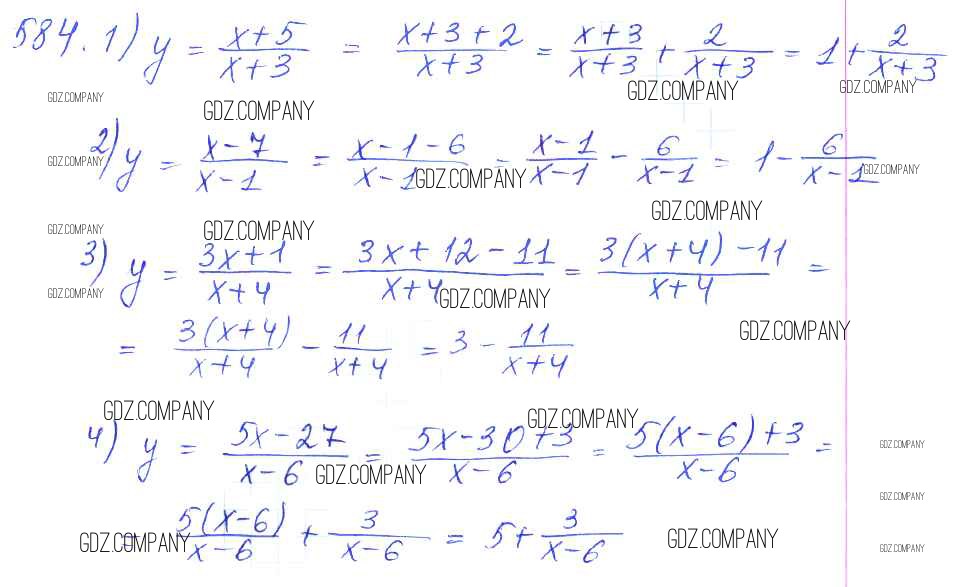 584. 1) y = (x+5)/(x+3) = (x+3+2)/(x+3) = (x+3)/(x+3) + 2/(x+3) = 1 + 2/(x+3)
GDZ.COMPANY GDZ.COMPANY GDZ.COMPANY GDZ.COMPANY
2) y = (x-7)/(x-1) = (x-1-6)/(x-1) = (x-1)/(x-1) - 6/(x-1) = 1 - 6/(x-1)
GDZ.COMPANY GDZ.COMPANY GDZ.COMPANY
GDZ.COMPANY GDZ.COMPANY GDZ.COMPANY
3) y = (3x+1)/(x+4) = (3x+12-11)/(x+4) = (3(x+4)-11)/(x+4) =
GDZ.COMPANY GDZ.COMPANY GDZ.COMPANY
= 3(x+4)/(x+4) - 11/(x+4) = 3 - 11/(x+4)
GDZ.COMPANY GDZ.COMPANY
4) y = (5x-27)/(x-6) = (5x-30+3)/(x-6) = (5(x-6)+3)/(x-6) =
GDZ.COMPANY GDZ.COMPANY GDZ.COMPANY
= 5(x-6)/(x-6) + 3/(x-6) = 5 + 3/(x-6)
GDZ.COMPANY GDZ.COMPANY GDZ.COMPANY